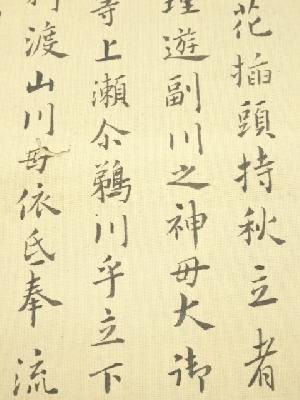 花插頭持秋立者
理遊副川之神毋大御
等上瀬尒鵜川乎立下
渡山川毋依氐奉流